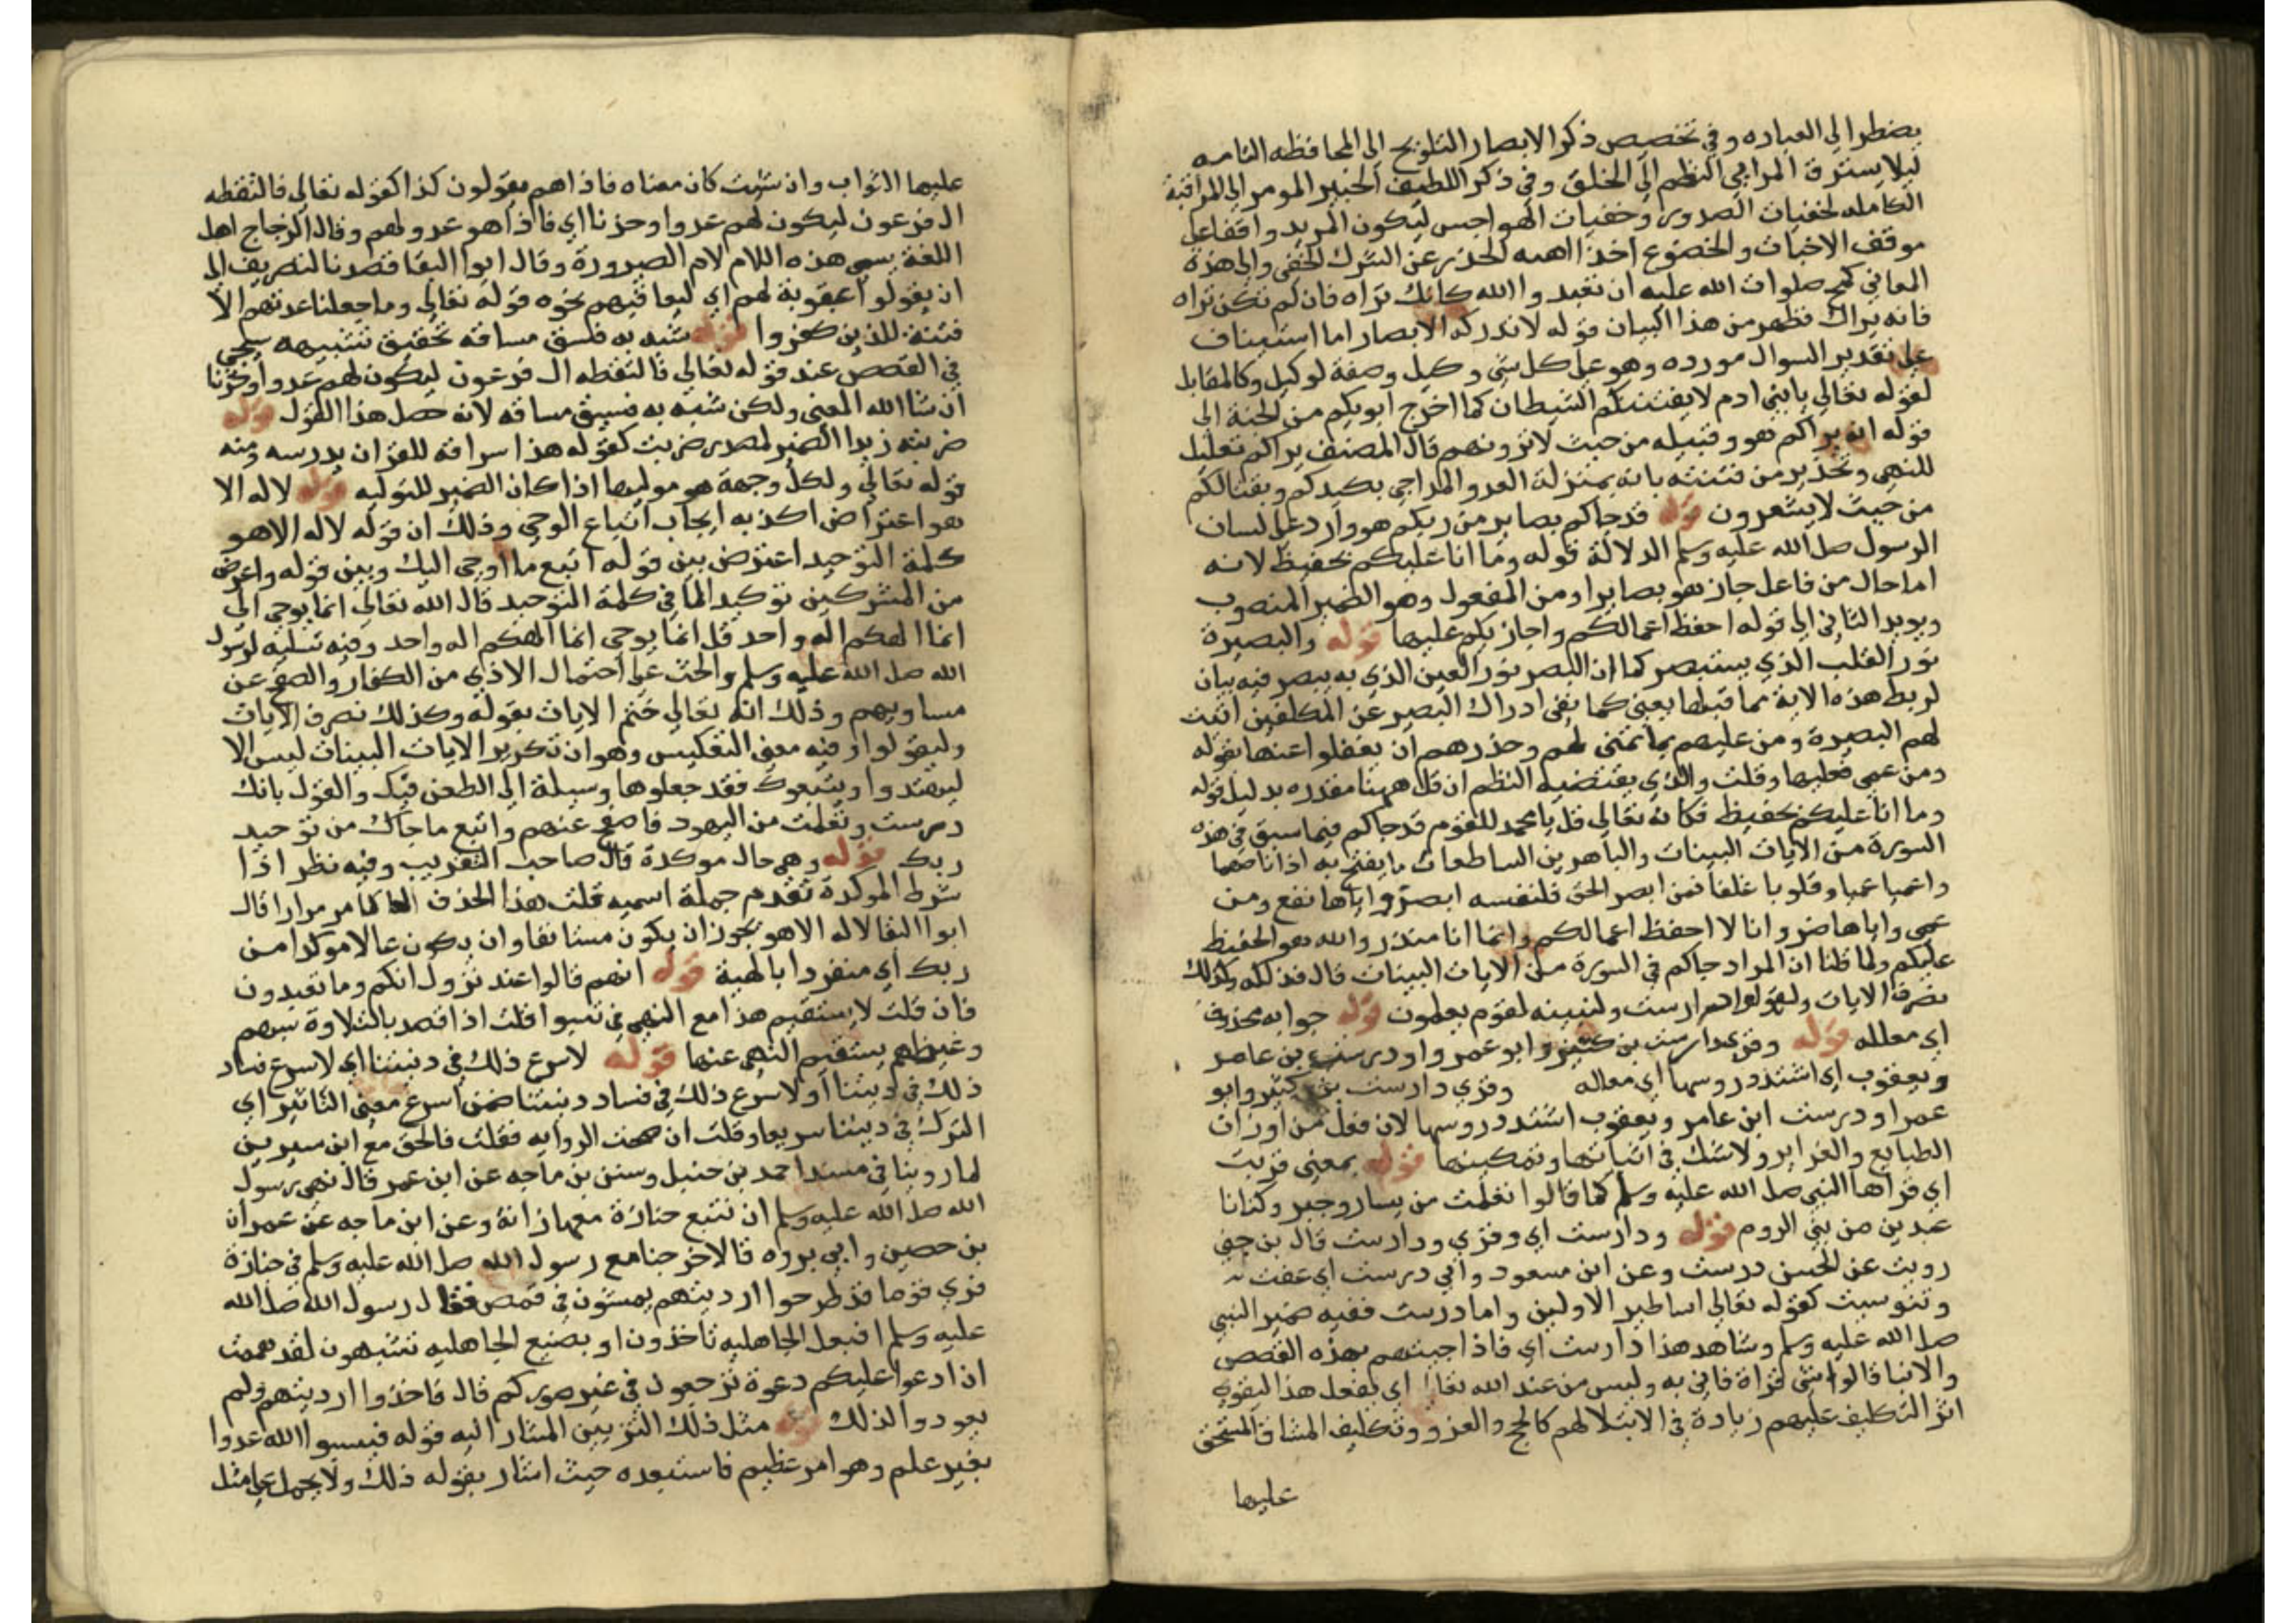 يضطر الى العباره وفي تخصيص ذكر الابصار التلويح الى المحافظه التامه
ليلا يسترق المراىي النظر الى الخلق وفي ذكر اللطيف الخبير المومي الى المراقبة
الكامله لخفيات الصدور وخفيات الهواجس ليكون المريد واقفا على
موقف الاخبات والخضوع اخذا اهبه الحذر عن الشرك الخفي والى هذه
المعاني لمح صلوات الله عليه ان تعبدوا الله كانك تراه فان لم تكن تراه
فانه يراك فظهر من هذا البيان قوله لا تدركه الابصار اما استيناف
على تقدير السوال مورده وهو على كل شي وكيل وصفة لوكيل وكالمقابل
لقوله تعالى يا بني ادم لا يفتننكم الشيطان كما اخرج ابويكم من الجنة الى
قوله انه يراكم هو وقبيله من حيث لا ترونهم قال المصنف يراكم تعليل
للنهي وتحذير من فتنته بانه بمنزلة العدو المداجي يكيدكم ويغتالكم
من حيث لا يشعرون قوله قد جاكم بصاير من ربكم هو وارد على لسان
الرسول صلى الله عليه وسلم الدلالة قوله وما انا عليكم بحفيظ لانه
اما حال من فاعل جاز هو بصاير او من المفعول وهو الضمير المنصوب
ويويد الثاني الى قوله احفظ اعمالكم واجازيكم عليها قوله والبصيرة
نور القلب الذي يستبصر كما ان البصر نور العين الذي به يبصر فيه بيان
لربط هذه الاية بما قبلها يعني كما نفى ادراك البصير عن المكلفين اثبت
لهم البصيرة ومن عليهم بما تمنى لهم وحذرهم ان يغفلوا عنها بقوله
ومن عمي فعليها وقلت والذي يقتضيه النظم ان قل ههنا مقدره بدليل قوله
وما انا عليكم بحفيظ فكانه تعالى قل يا محمد للقوم قد جاكم فيما سبق في هذه
السورة من الايات البينات والباهرين الساطعات ما يفتح به اذانا صما
واعميا عميا وقلوبا غلفا فمن ابصر الحق فلنفسه ابصر واياها نفع ومن
عمي واياها ضر وانا لا احفظ اعمالكم وانما انا منذر والله هو الحفيظ
عليكم ولما قلنا ان المراد جاكم في السورة من الايات البينات قال فذلكه وكذلك
نصرف الايات وليقولوا دارست ولنبينه لقوم يعلمون قوله جوابه محذوف
اي معلله قوله وقرى دارست بن كثير وابو عمرو او درست بن عامر
ويعقوب اي اشتد دروسها اي معاله وقرى دارست بن كثير وابو
عمرا ودرست ابن عامر ويعقوب اشتد دروسها لان فعل من اوزان
الطبايع والغرايز ولا شك في اثباتها وتمكينها قوله بمعنى قريت
اي قراها النبي صلى الله عليه وسلم كما قالوا تعلمت من يسار وجبر وكنانا
عبدين من بني الروم قوله ودارست اي وقرى ودارست قال بن جني
رويت عن الحسن درست وعن ابن مسعود وابي درست اي عفت
وتنوسيت كقوله تعالى اساطير الاولين واما درست ففيه ضمير النبي
صلى الله عليه وسلم وشاهد هذا دارست اي فاذا جيتهم بهذه القصص
والانبا قالوا شي قراة فاتي به وليس من عند الله تعالى اي يفعل هذا ليقوي
اثر التكليف عليهم زيادة في الابتلا لهم كالحج والغزو وتكليف المشاق المستحق
عليها
عليها الثواب وان شيت كان معناه فاذا هم يقولون كذا كقوله تعالى فالتقطه
ال فرعون ليكون لهم عدوا وحزنا اي فاذا هو عدو لهم وقال الزجاج اهل
اللغة يسمى هذه اللام لام الصيرورة وقال ابوا البقا قصدنا لتصريف الى
ان يقولوا عقوبة لهم اي ليعاقبهم نحوه قوله تعالى وما جعلنا عدتهم الا
فتنة للذين كفروا قوله شبه به فلسق مساقة تحقيق تشبيهه يجي
في القصص عند قوله تعالى فالتقطه ال فرعون ليكون لهم عدوا وحزنا
ان شا الله المعنى ولكن شبه به فسيق مساقه لانه حصل هذا القول قوله
ضربته زيدا الضمير لمصدر ضربت كقوله هذا سراقة للقران يدرسه ومنه
قوله تعالى ولكل وجهة هو موليها اذا كان الضمير للتوليه قوله لا اله الا
هو اعتراض اكد به ايجاب اتباع الوحي وذلك ان قوله لا اله الا هو
كلمة التوحيد اعترض بين قوله اتبع ما اوحي اليك وبين قوله واعرض
من المشركين توكيد الما في كلمة التوحيد قال الله تعالى انما يوحي الي
انما الهكم اله واحد قل انما يوحي انما الهكم اله واحد وفيه تسليه لرسول
الله صلى الله عليه وسلم والحث على احتمال الاذي من الكفار والصفح عن
مساويهم وذلك انه تعالى ختم الايات بقوله وكذلك نصرف الايات
وليقولوا وفيه معنى التعكيس وهو ان تكرير الايات البينات ليس الا
ليهتدوا ويتبعوك فقد جعلوها وسيلة الى الطعن فيك والقول بانك
درست وتعلمت من اليهود فاصفح عنهم واتبع ما جاك من توحيد
ربك قوله وهي حال موكدة قال صاحب التقريب وفيه نظر اذا
شرط الموكدة تقدم جملة اسميه قلت هذا الحذف كما مر مرارا قال
ابوا البقا لا اله الا هو يجوز ان يكون مستانفا وان يكون حالا موكدا من
ربك اي منفردا بالهية قوله انهم قالوا عند نزول انكم وما تعبدون
فان قلت لا يستقيم هذا مع النهي في تسبوا قلت اذا قصد بالتلاوة سبهم
وغيظهم يستقيم النهي عنها قوله لاسرع ذلك في ديننا اي لاسرع فساد
ذلك في ديننا او لاسرع ذلك في فساد ديننا ضمن اسرع معنى التاثير اي
الترك في ديننا سريعا وقلت ان صحت الروايه فقلت فالحق مع ابن سيرين
لما روينا في مسند احمد بن حنبل وسنن بن ماجه عن ابن عمر قال نهى رسول
الله صلى الله عليه وسلم ان نتبع جنازة معها زانة وعن ابن ماجه عن عمران
بن حصين وابي برزه قالا خرجنا مع رسول الله صلى الله عليه وسلم في جنازة
فرى قوما قد طرحوا ارديتهم يمشون في قمص فقال رسول الله صلى الله
عليه وسلم افبعل الجاهليه تاخذون او بصنيع الجاهليه تتشبهون لقد هممت
ان ادعوا عليكم دعوة ترجعون في غير صوركم قال فاخذوا ارديتهم ولم
يعودوا لذلك قوله مثل ذلك التزيين المشار اليه قوله فيسبوا الله عدوا
بغير علم وهو امر عظيم فاستبعده حيث اشار بقوله ذلك ولا يحمل على مثل